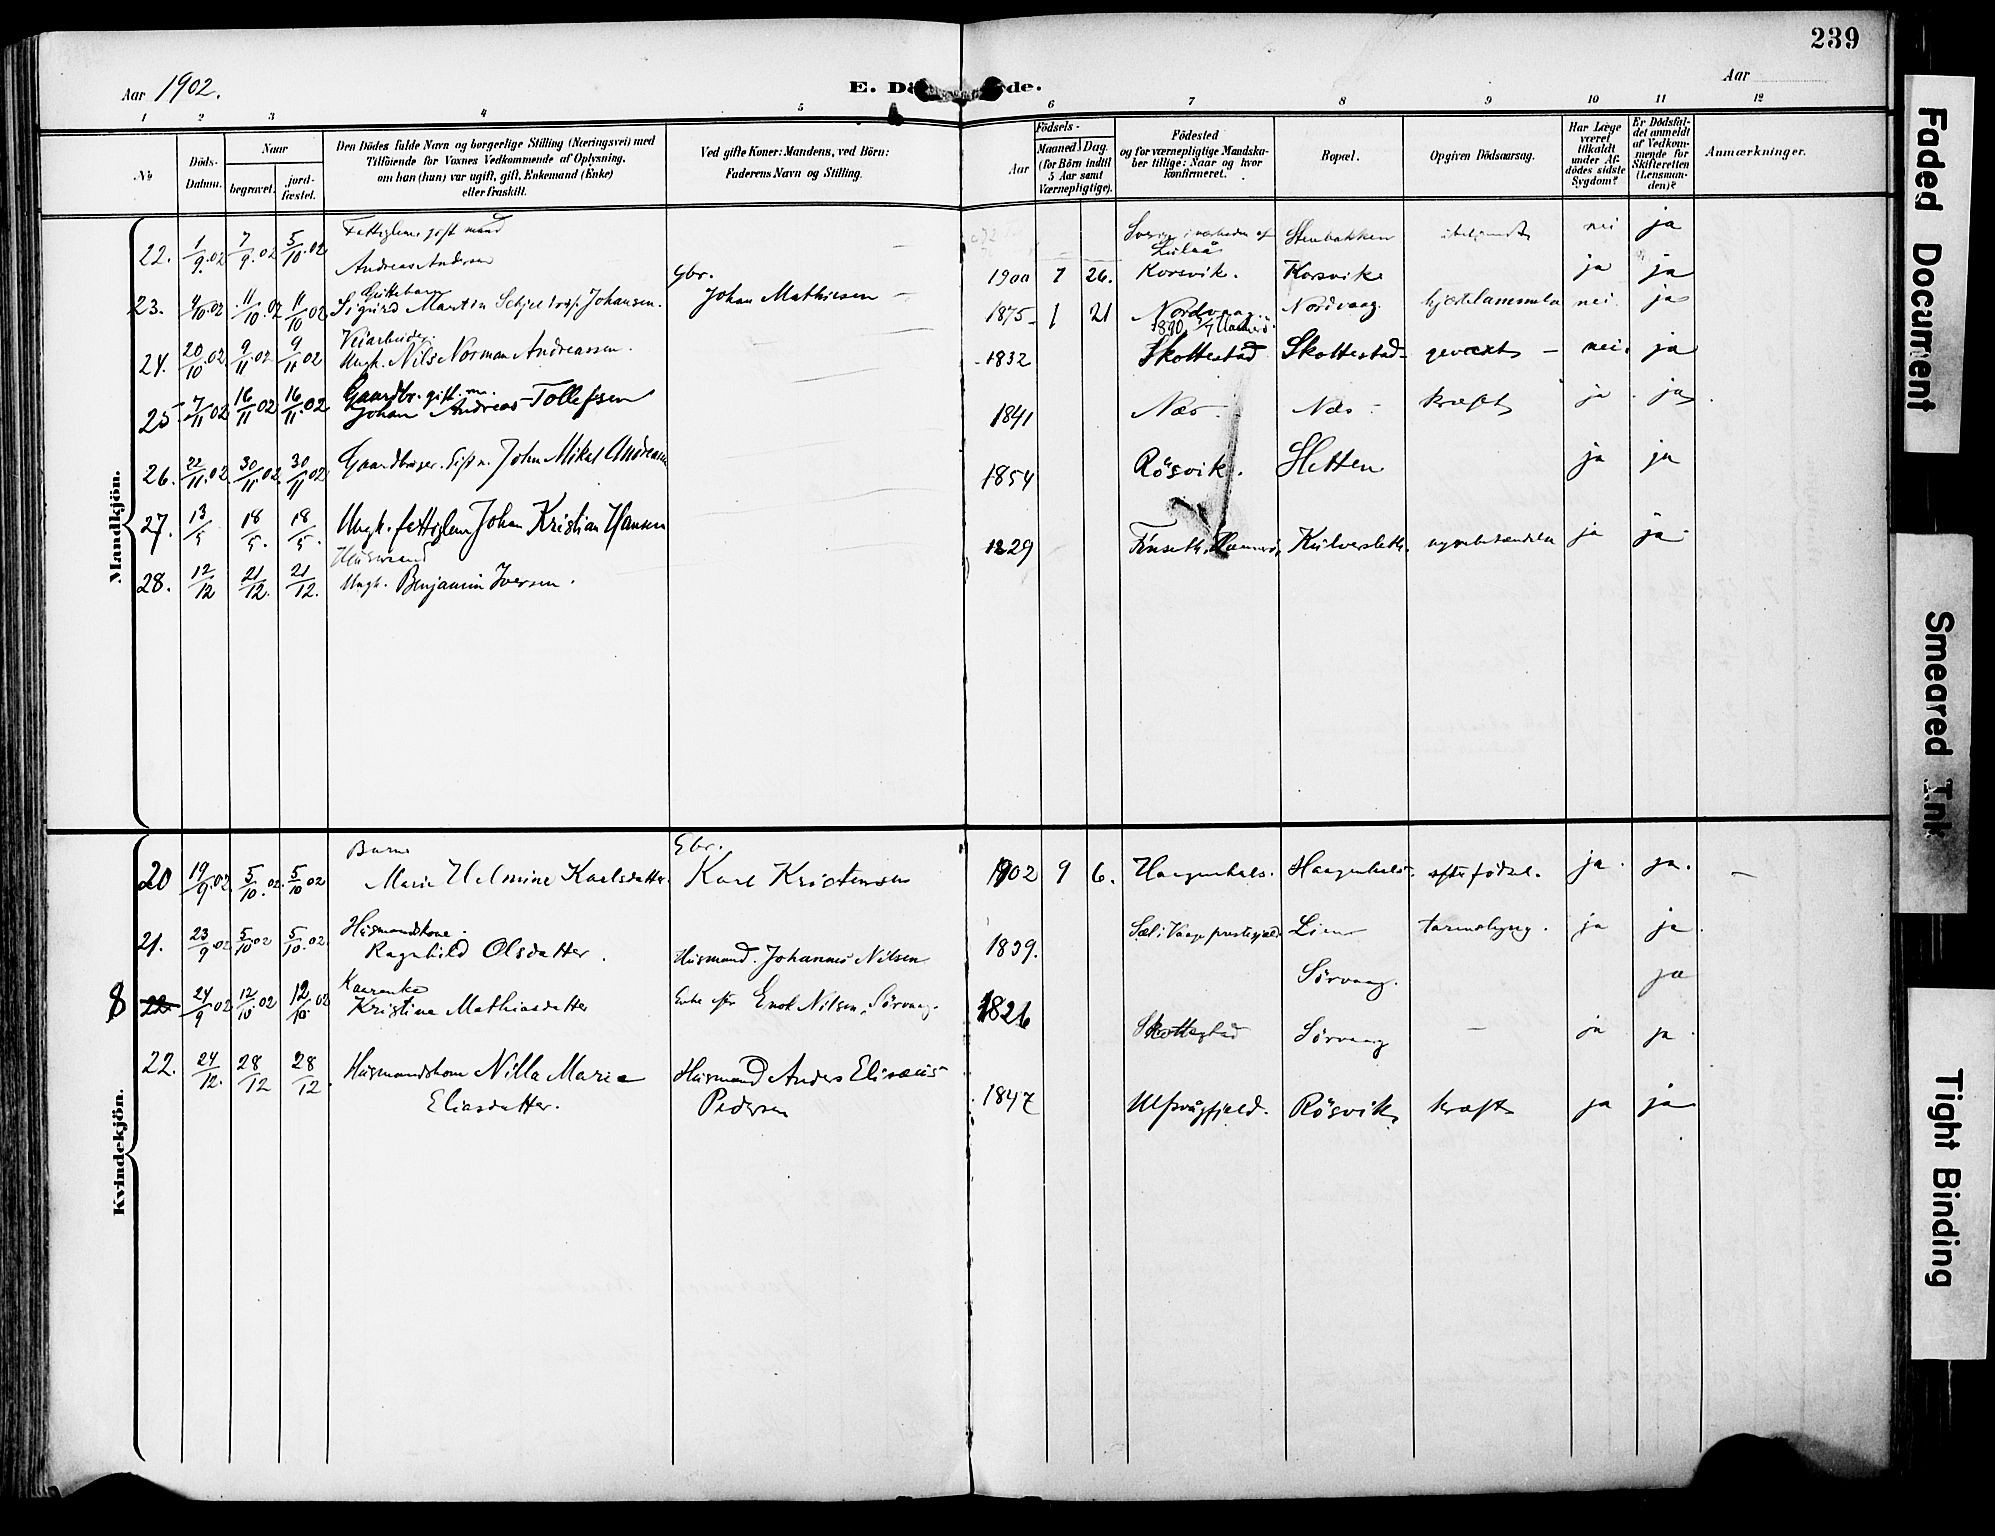 239
Aar 1902.
E. Dö de.
Aar
1 2 3 4 5 6 7 8 9 10 11 12
No
Döds-Datum.
Naar
begravet.
jord-fæstet.
Den Dödes fulde Navn og borgerlige Stilling (Næringsvei) med
Tilföiende for Voxnes Vedkommende af Oplysning,
om han (hun) var ugift, gift, Enkemand (Enke)
eller fraskilt.
Ved gifte Koner: Mandens, ved Börn:
Faderens Navn og Stilling.
Födsels-
Aar
Maaned Dag.
(for Börn indtil
5 Aar samt
Værnepligtige).
Födested
og for værnepligtige Mandska-
ber tillige: Naar og hvor
konfirmeret.
Bopæl.
Opgiven Dödsaarsag.
Har Læge
været
tilkaldt
under Af-
dödes sidste
Sygdom?
Er Dödsfal-
det anmeldt
af Vedkom-
mende for
Skifteretten
(Lensman-
den)?
Anmærkninger.
Mandkjön.
22. 1/9.02 7/9.02 5/10.02 Fattiglem gift mand
Andreas Andersen
Stenbakken nei ja
23. 4/10.02 11/10.02 11/10.02 Guttebarn
Sigurd Martin Johansen.
Gbr.
Johan Mathiesen
1900 7 26. Korsvik. Korsvik ja ja
24. 20/10.02 9/11.02 9/11.02 Veiarbeider.
Ungk. Nils Norman Andreassen.
1875 1 21 Nordvaag. Nordvaag. hjertelammelse nei. ja
25 7/11.02 16/11.02 16/11.02 Gaardbr. gift m.
Johan Andreas Tollefsen
1832 Skottestad Skottestad gevext nei. ja
26. 22/11.02 30/11.02 30/11.02 Gaardbruger. Gift m. John Mikal Andreasen
1841 Næs Næs kræft ja ja
27. 13/5 18/5. 18/5. Ungk. fattiglem Johan Kristian Hansen
1854 Rösvik. Sletten ja ja
28. 12/12 21/12. 21/12. Husmand
Ungk. Benjamin Iversen.
1829 ja ja
Kvindekjön.
20 19/9.02 5/10.02 5/10.02 Barn
Marie Helmine Karlsdatter
Gbr.
Karl Kristensen
1902 9 6. Haagenhals. Haagenhals. efter födsel. ja. ja.
21. 23/9.02 5/10.02 5/10.02. Husmandskone.
Ragnhild Olsdatter.
Husmand. Johannes Nilsen
1839. ja ja.
Sörvaag. ja
8 22 24/9.02 12/10.02 12/10.02 Kaarenke
Kristine Mathiasdatter
Enke efter Enok Nilsen, Sörvaag.
1826 Skottestad Sörvaag ja ja.
22. 24/12. 28/12 28/12. Husmandskone Nilla Marie
Eliasdatter.
Husmand Anders Elisæus
Pedersen
1847 Ulfsvågfjeld. Rösvik kræft ja ja
Faded Document
Smeared Ink
Tight Binding